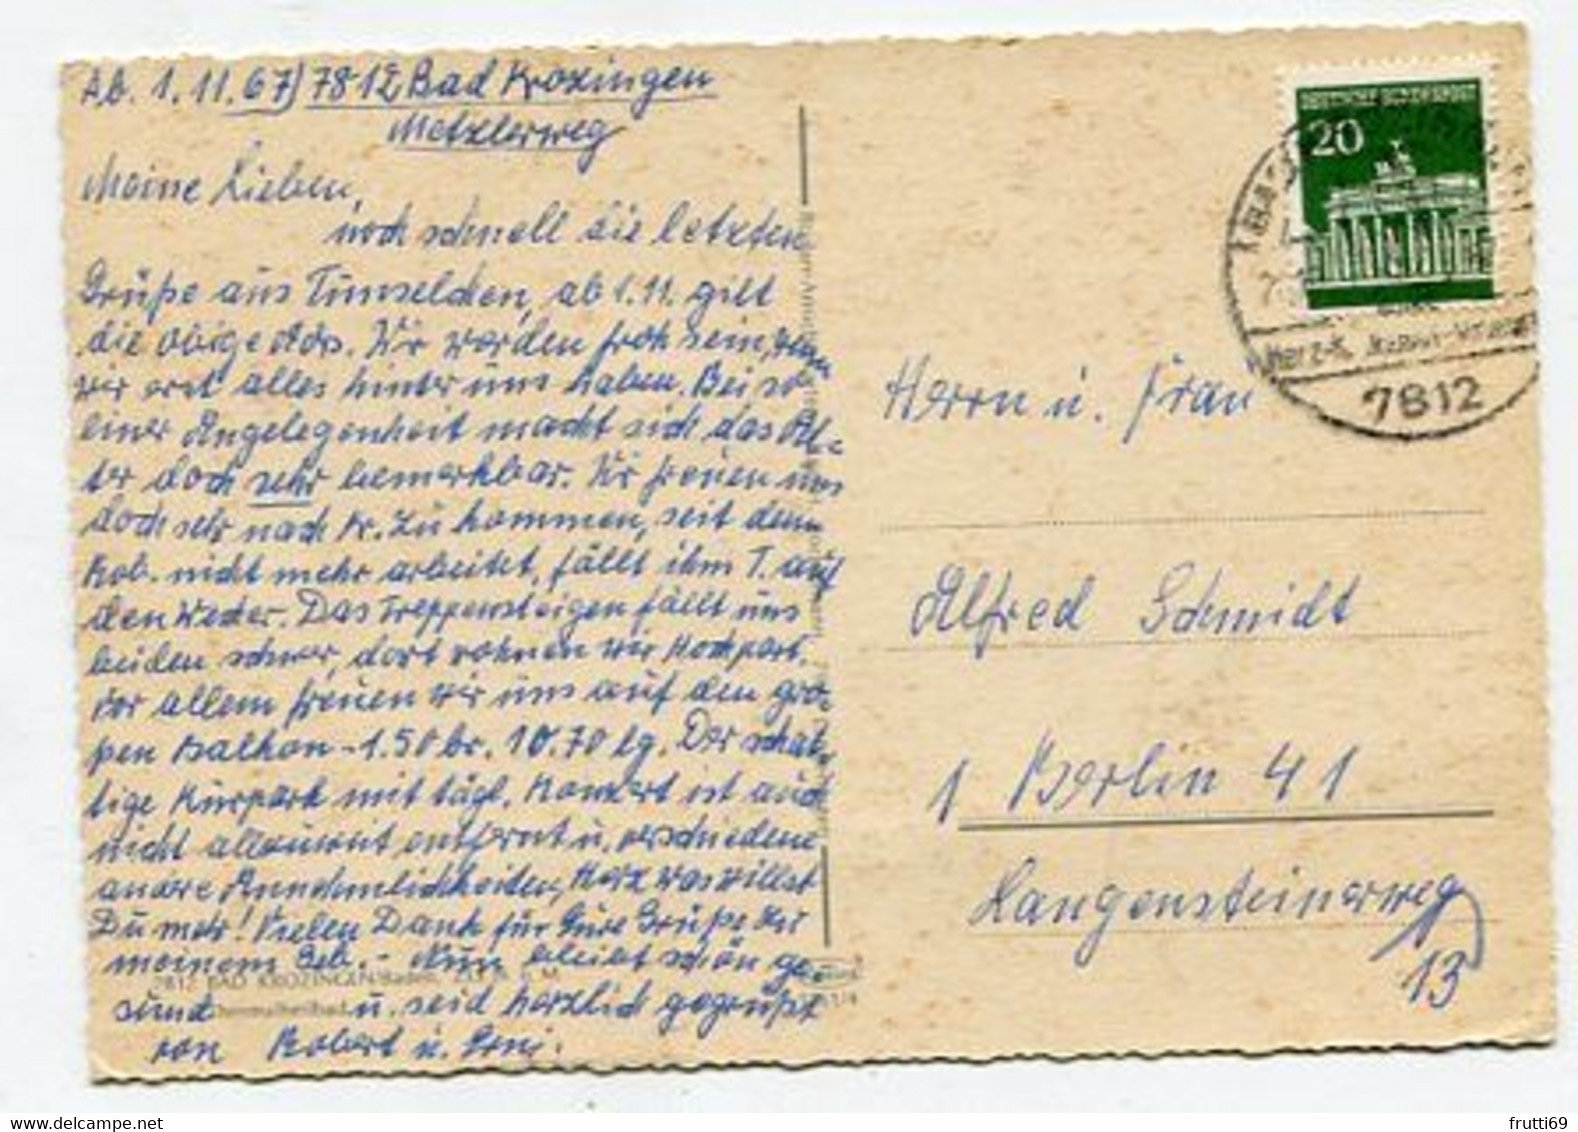 Ab. 1.11.67) 7812 Bad Krozingen
Metzlerweg
Meine Lieben,
noch schnell die letzten
Grüße aus Tunselden, ab 1.11. gilt
die obige Adrs. Wir werden froh sein, wenn
wir erst alles hinter uns haben. Bei so
einer Angelegenheit macht sich das Al-
ter doch sehr bemerkbar. Wir freuen uns
doch sehr nach Kr. zu kommen, seit dem
Rob. nicht mehr arbeitet, fällt ihm T. auf
den Wecker. Das Treppensteigen fällt uns
beiden schwer, dort wohnen wir Hochpart.
Vor allem freuen wir uns auf den gro-
ßen Balkon - 1.50 br. 10.70 lg. Der schat-
tige Kurpark mit tägl. Konzert ist auch
nicht allzuweit entfernt u. verschiedene
andre Annehmlichkeiten, Herz was willst
Du mehr! Vielen Dank für Eure Grüße zu
meinem Geb. - Nun bleibt schön ge-
7812 BAD KROZINGEN/Baden
sund u. seid herzlich gegrüßt
Thermalheilbad
von Robert u. Erni.
DEUTSCHE BUNDESPOST
20
7812
Herrn u. Frau
Alfred Schmidt
1 Berlin 41
Langensteinerweg
13
frutti69